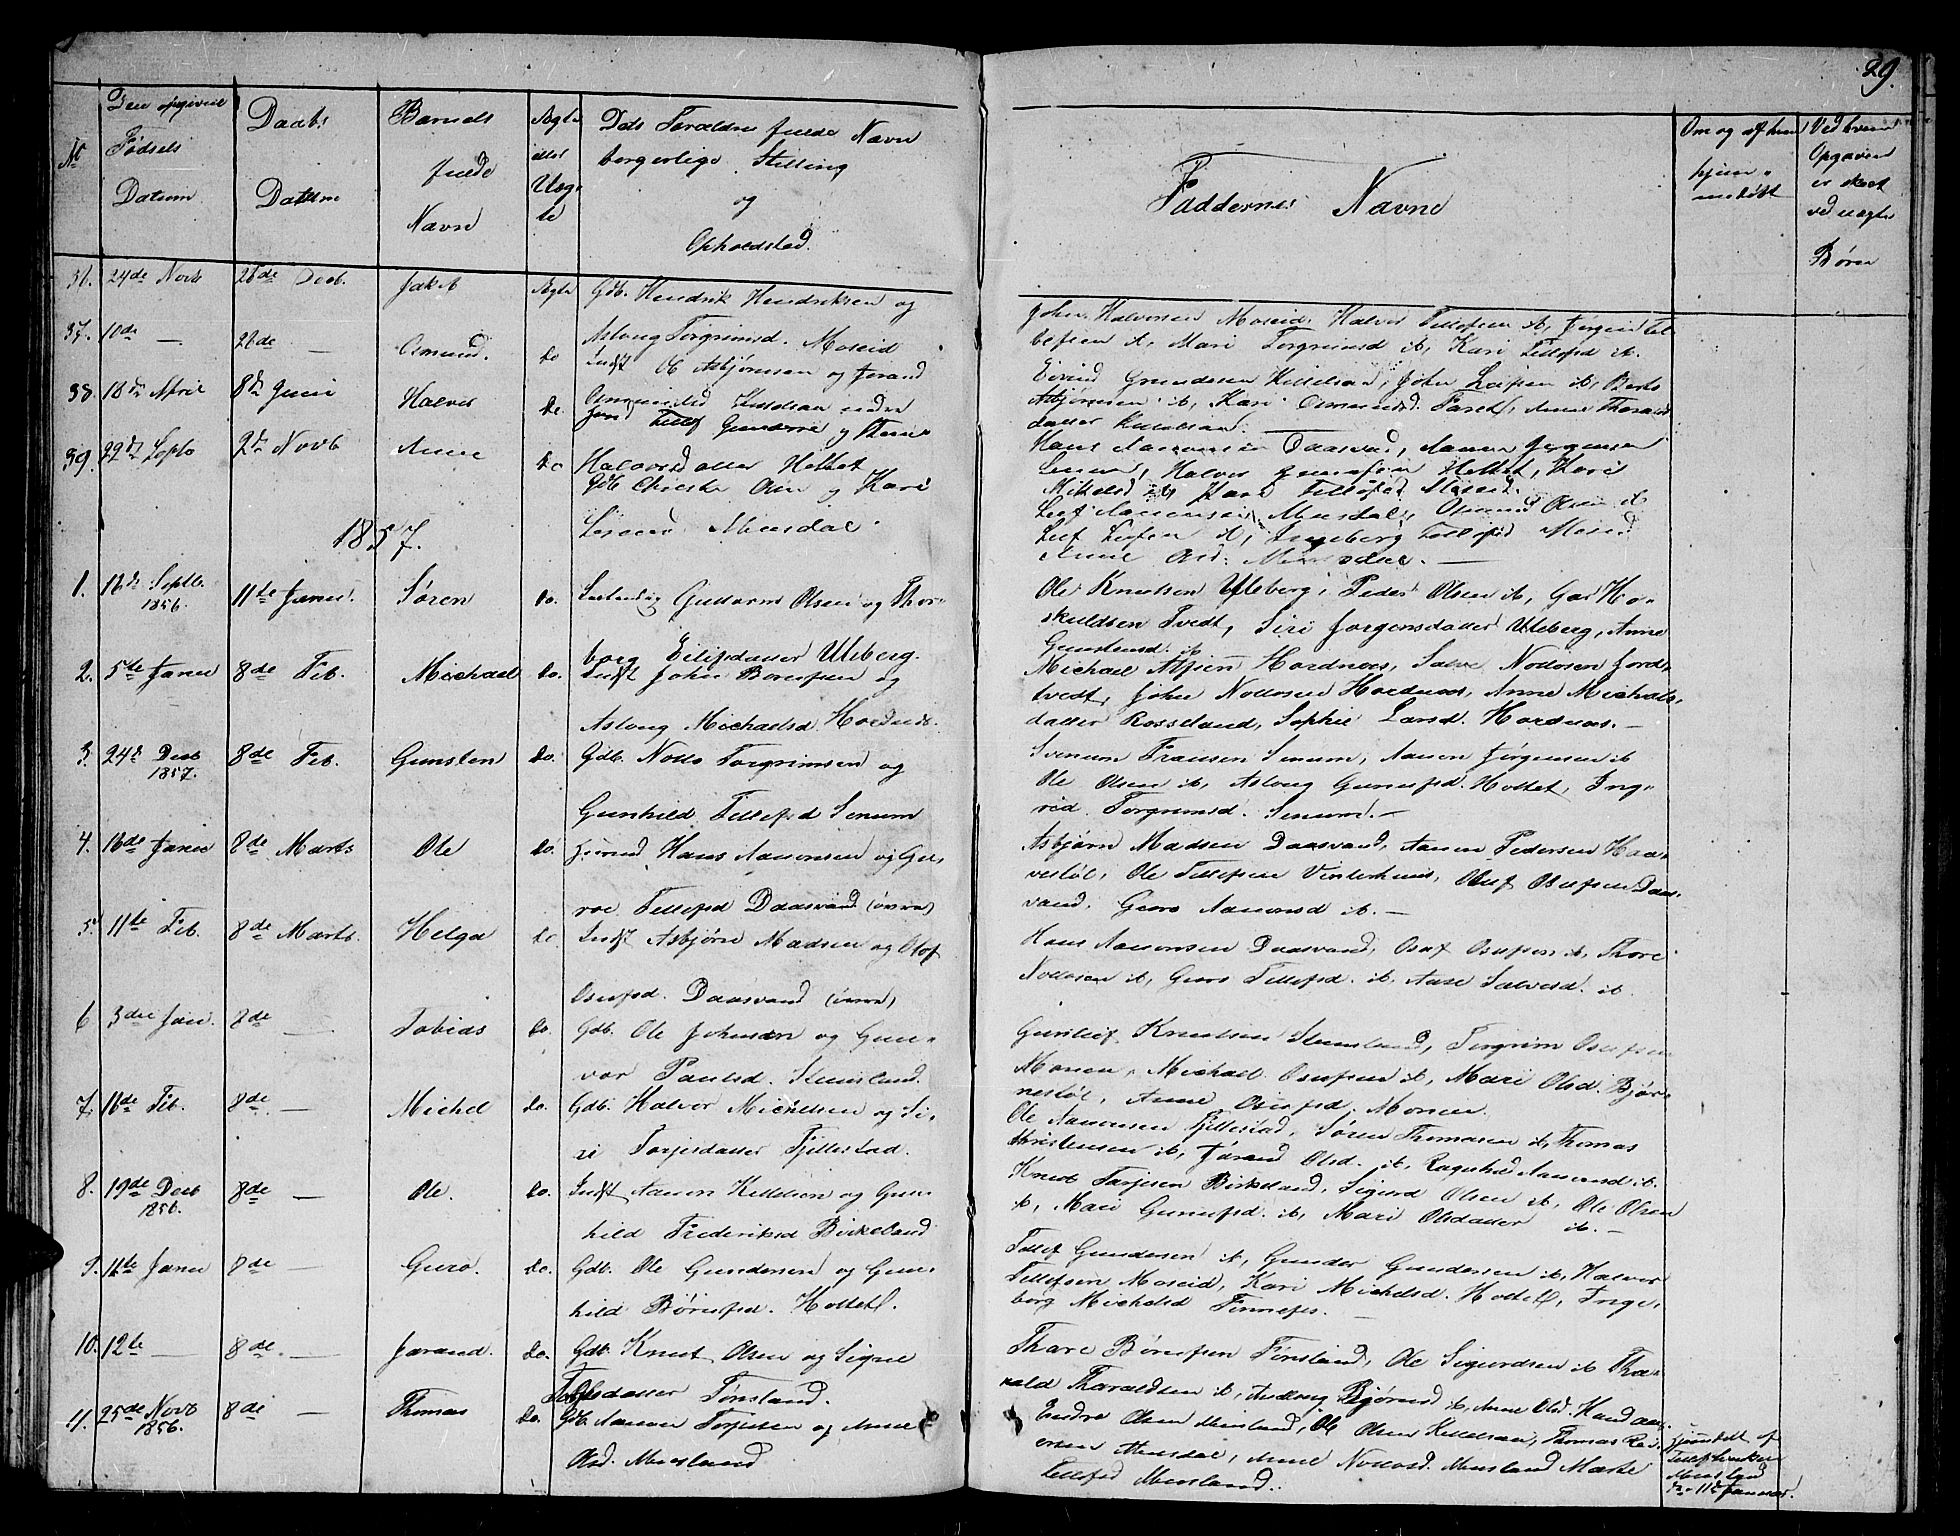 29.
No
Den opgivne
Fødsels
Datum
Daabs
Datum
Barnets
fulde
Navn
Ægte
eller
Uæg-
te
Dets Forældres fulde Navn
borgerlige Stilling
og
Opholdsted.
Faddernes Navne
Om og af hvem
hjemme-
døbt
Ved hvem
Opgaven
er skeet
ved uægte
Børn
36. 24de Novb 26de Decb. Jakob Ægte Gdb. Hendrik Hendriksen og
Aslaug Torgrimsd. Moseid
John Halvorsen Moseid, Halvor Tellefsen ib, Jørgen Tel-
lefsen ib, Mari Torgrimsd ib, Kari Tellefsd ib.
37. 10de — 26de — Osmund. do Indst Ole Asbjørnsen og Jorand
Osmundsd Killelsaa
Eivind Gundersen Killelsaa, John Leifsen ib,
Asbjørnsen ib, Kari Osmundsd.
datter Killelsaa.
38. 18de April 8de Juni Halvor do. Tellef Gundersen og
Halvorsdatter Holtet
Hans Aanonsen Daasvand, Aanon Jørgensen
Senum, Halvor Holtet, Kari
Mikelsd ib, Kari Tellefsd Moseid.
39. 22de Septb 2de Novb Anne do Gdb Christen Olsen og Kari
Mensdal.
Leif Aanonsen Mensdal, Osmund Olsen ib
Leif Leifsen ib, Ingeborg Tellefsd Moseid
Anne Olsd. Mensdal. —
1857.
1. 16de Septb. 1856. 11te Janu. Søren do. Guttorm Olsen og Thor-
borg Eilifsdatter Uleberg.
Ole Knutsen Uleberg, Peder Olsen ib, Ho-
skuldsen Tvedt, Siri Jørgensdatter Uleberg, Anne
Gunstensd. ib
2. 5te Janu 8de Feb. Michael do. Indst John Børufsen og
Aslaug Michaelsd. Hordnæs.
Michael Alfsen Hordnæs, Salve Nottosen Jord-
tvedt, John Nottosen Hordnæs, Anne Michals-
datter Rosseland, Sophie Larsd. Hordnæs. —
3. 24de Decb 1857. 8de Feb. Gunsten do. Gdb. Notto Torgrimsen og
Gunhild Tellefsd Senum
Svenum Fransen Senum, Aanon Jørgensen ib
Ole Olsen ib, Aslaug Gunufsd. Holtet, Ing-
rid Torgrimsd. Senum. —
4. 16de Janu 8de Marts Ole do. Hans Aanonsen og Gu-
roe Tellefsd Daasvand (øvre)
Asbjørn Madsen Daasvand, Aanon Pedersen Haa-
vestøl, Ole Tellefsen Vinterhuus, Osuf Osufsen Daas-
vand, Guro Aanonsd ib. —
5. 11te Feb. 8de Marts. Helga do. Indst Asbjørn Madsen og Olof
Osufsd. Daasvand (øvre)
Hans Aanonsen Daasvand, Osuf Osufsen ib, Thore
Nottosen ib, Guro Tellefsd. ib, Aase Salvesd. ib.
6 3die Jan. 8de — Tobias do. Gdb. Ole Johnsen og Gun-
vor Paulsd. Stensland.
Gunleif Knutsen Stensland, Torgrim Osufsen
Monen, Michael Osufsen ib, Mari Olsd. Bjør-
nestøl, Anne Osufsd. Monen.
7. 16de Feb. 8de — Michel do. Gdb. Halvor Michelsen og Si-
ri Torjusdatter Fjellestad.
Ole Aanonsen Fjellestad, Søren Thomasen ib, Thomas
Christensen ib, Jorand Olsd. ib, Ragnhild Aanonsd ib.
8. 19de Decb 1856. 8de — Ole. do. Indst Aanon Killelsen og Gun-
hild Frederiksd Birkeland
Knut Torjusen Birkeland, Sigurd Olsen ib, Ole Olsen
ib, Mari Gunufsd. ib, Mari Olsdatter ib. —
9. 11te Janu 8de — Guro. do. Gdb. Ole Gundersen og Gun-
hild Børufsd. Holtet.
Tellef Gundersen ib, Gunder Gundersen ib, Halvor
Tellefsen Moseid, Kari Michelsd. Holtet, Inge-
borg Michelsd Finnefos. —
10. 12te — 8de. — Jorand. do. Gdb. Knut Olsen og Signe
Tønsland.
Thore Børufsen Tønsland, Ole Sigurdsen ib Tha-
rald Tharaldsen ib, Aaslaug Bjørnsd ib, Anne Olsd.
11. 25de Novb 1856. 8de — Thomas do. Gdb. Aanon Torjusen og Anne
Olsd. Mensland
Endre Olsen Mensland, Ole Olsen Killelsaa, Thomas
Mensdal, Anne Nottosd. Mensland Marte
Tellefsd Mensland.
hjemdøbt af
Tellef
Mensland
d. 11te Januar.